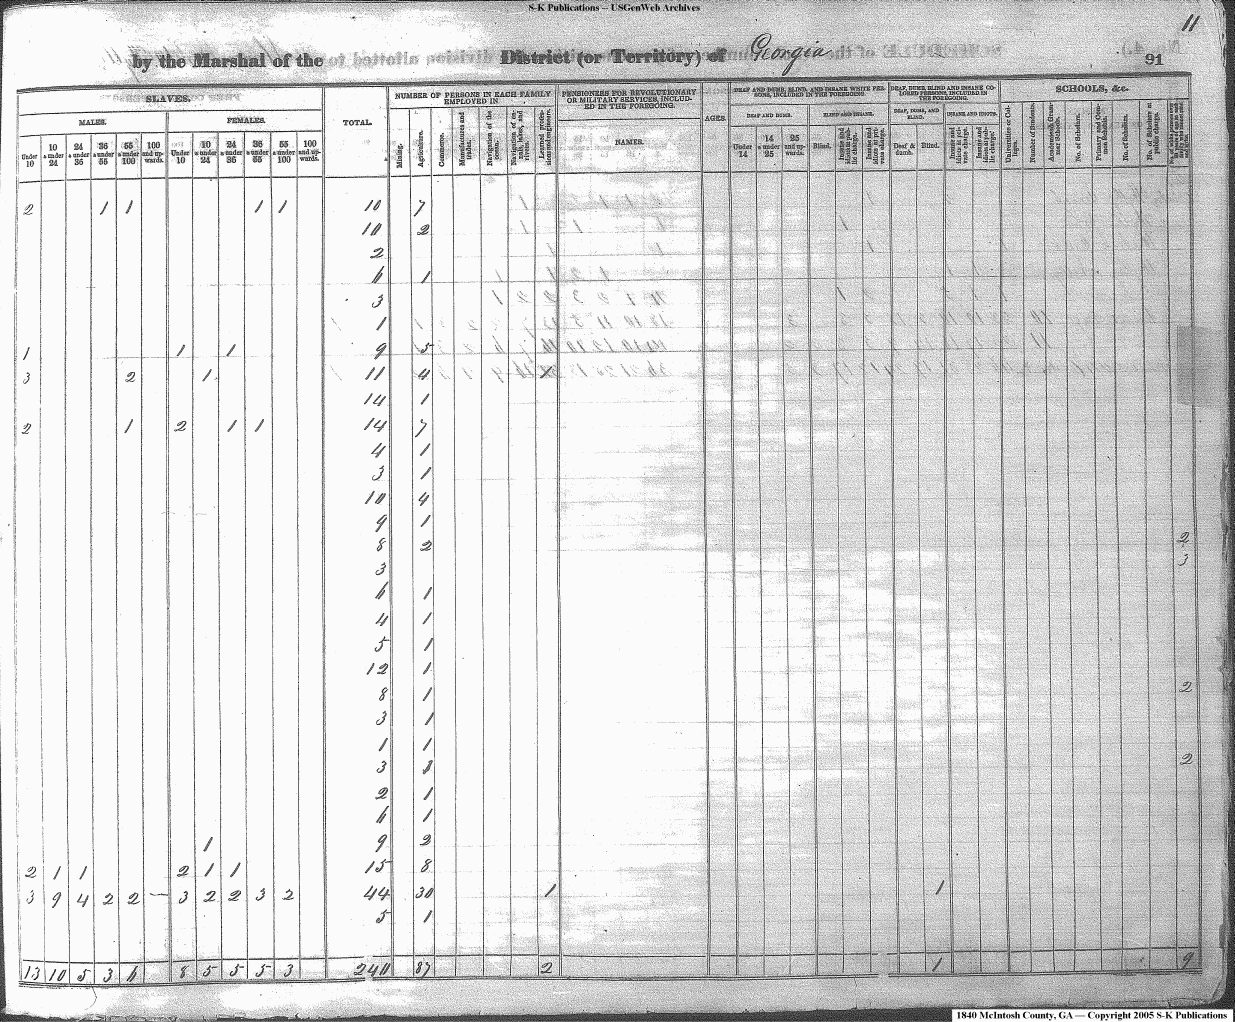 S-K Publications – USGenWeb Archives
11
by the Marshal of the District (or Territory) of Georgia
91
SLAVES. TOTAL. NUMBER OF PERSONS IN EACH FAMILY EMPLOYED IN PENSIONERS FOR REVOLUTIONARY OR MILITARY SERVICES, INCLUDED IN THE FOREGOING. AGES. DEAF AND DUMB, BLIND, AND INSANE WHITE PERSONS, INCLUDED IN THE FOREGOING. DEAF, DUMB, BLIND AND INSANE COLORED PERSONS, INCLUDED IN THE FOREGOING. SCHOOLS, &c.
MALES. FEMALES. NAMES. DEAF AND DUMB. BLIND AND INSANE. DEAF, DUMB, AND BLIND. INSANE AND IDIOTS.
Under 10 10 & under 24 24 & under 36 36 & under 55 55 & under 100 100 and upwards. Under 10 10 & under 24 24 & under 36 36 & under 55 55 & under 100 100 and upwards. Mining. Agriculture. Commerce. Manufactures and trades. Navigation of the ocean. Navigation of canals, lakes, and rivers. Learned professions and engineers. Under 14 14 & under 25 25 and upwards. Blind. Deaf & dumb. Blind. Universities or Colleges. Number of Students. Academies & Grammar Schools. No. of Scholars. No. of Scholars. No. of Scholars at public charge.
2 1 1 1 1 10 7
10 2
2
6 1
3
1
1 1 1 9 5
3 2 1 11 4
14 1
2 1 2 1 1 14 7
4 1
3 1
10 4
9 1
8 2 2
3 3
6 1
4 1
5 1
12 1
8 1 2
3 1
1 1
3 2
2 1
6 1
1 9 2
2 1 1 2 1 1 15 8
3 9 4 2 2 — 3 2 2 3 2 44 30 1 1
5 1
13 10 5 3 6 8 5 5 5 3 240 87 2 1 9
1840 McIntosh County, GA — Copyright 2005 S-K Publications